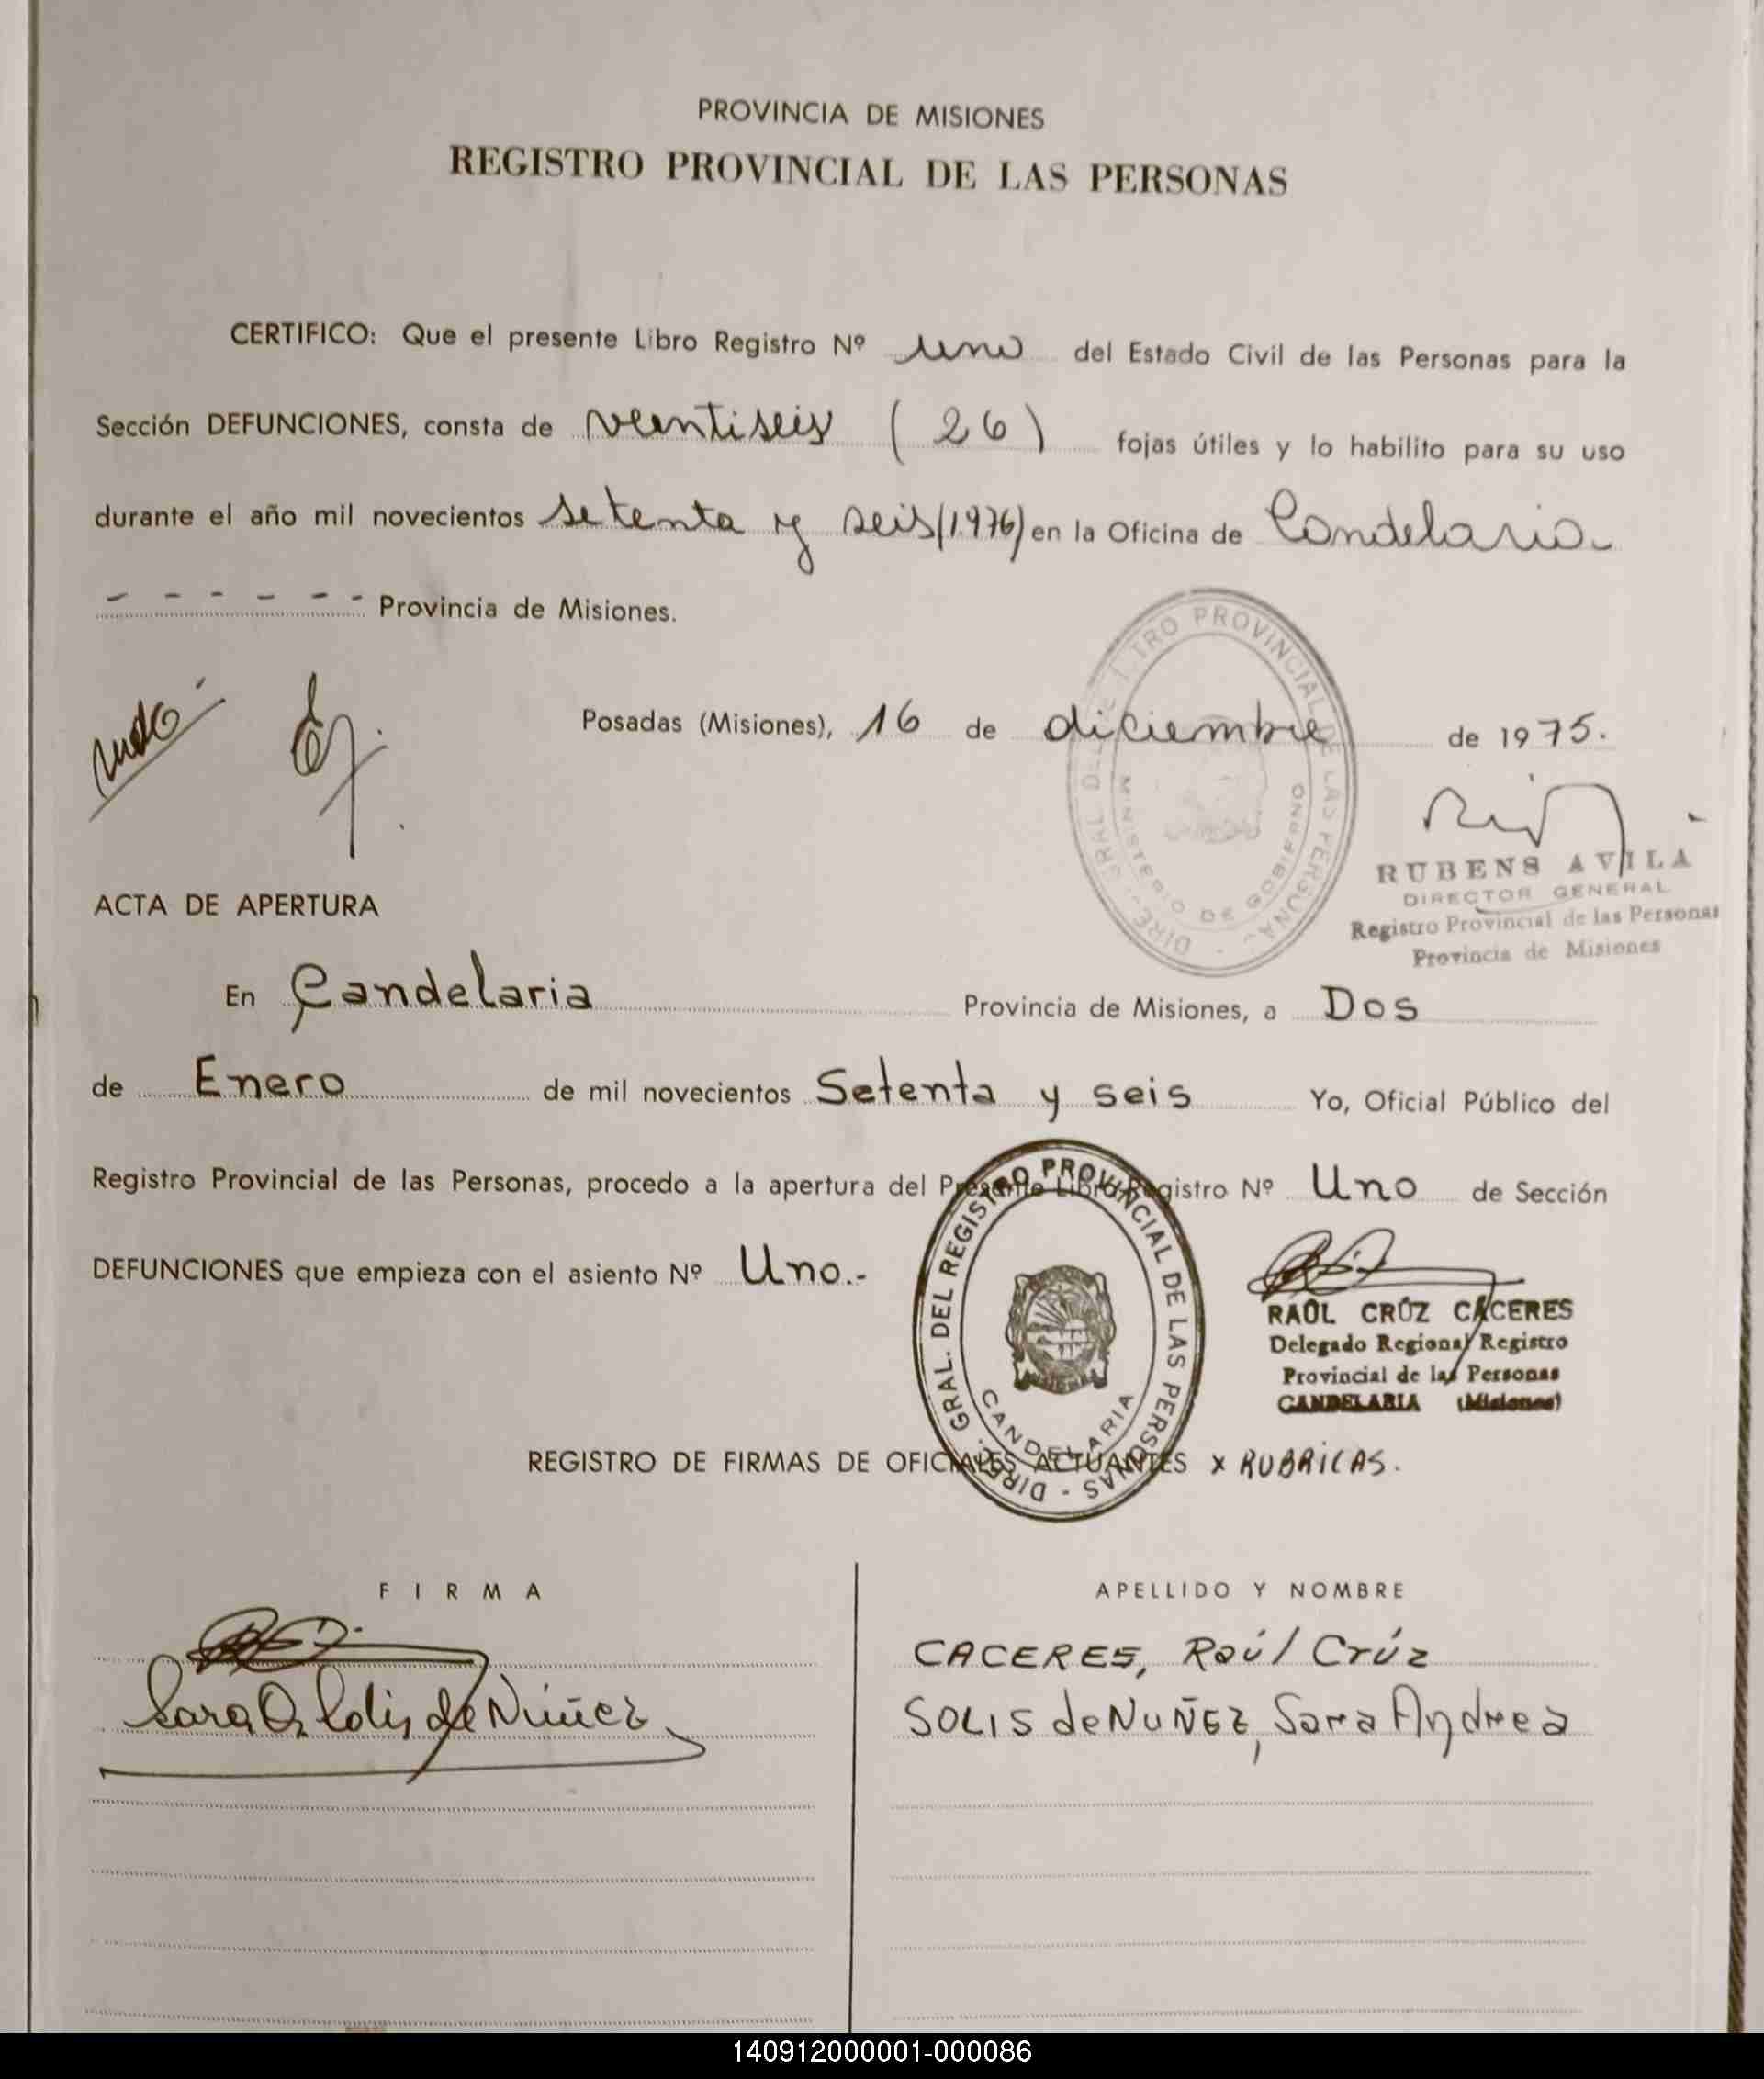 PROVINCIA DE MISIONES
REGISTRO PROVINCIAL DE LAS PERSONAS
CERTIFICO: Que el presente Libro Registro Nº uno del Estado Civil de las Personas para la
Sección DEFUNCIONES, consta de veintiseis (26) fojas útiles y lo habilito para su uso
durante el año mil novecientos setenta y seis (1976) en la Oficina de Candelaria.
- - - - - - Provincia de Misiones.
Posadas (Misiones), 16 de diciembre de 1975.
PROVINCIAL DE LAS PERSONAS
MINISTERIO DE GOBIERNO
RUBENS AVILA
DIRECTOR GENERAL
Registro Provincial de las Personas
Provincia de Misiones
ACTA DE APERTURA
En Candelaria Provincia de Misiones, a Dos
de Enero de mil novecientos Setenta y seis Yo, Oficial Público del
Registro Provincial de las Personas, procedo a la apertura del Presente Libro Registro Nº Uno de Sección
DEFUNCIONES que empieza con el asiento Nº Uno.-
DIREC. GRAL. DEL REGISTRO PROVINCIAL DE LAS PERSONAS -
CANDELARIA
RAÚL CRÚZ CÁCERES
Delegado Regional Registro
Provincial de las Personas
CANDELARIA (Misiones)
REGISTRO DE FIRMAS DE OFICIALES ACTUANTES x RUBRICAS.
FIRMA APELLIDO Y NOMBRE
CACERES, Raúl Crúz
Sara A. Solis de Nuñez SOLIS de NUÑEZ, Sara Andrea
140912000001-000086